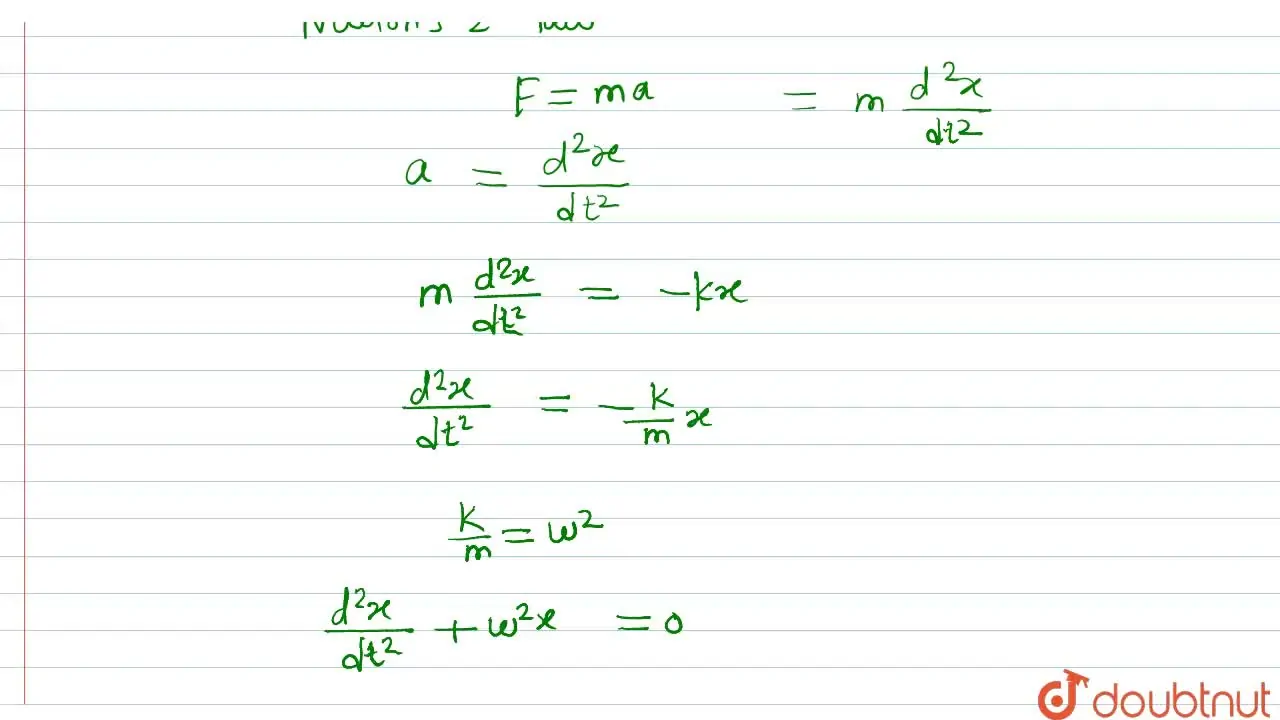 F = ma = m d²x/dt²
a = d²x/dt²
m d²x/dt² = -kx
d²x/dt² = -k/m x
k/m = w²
d²x/dt² + w²x = 0
doubtnut